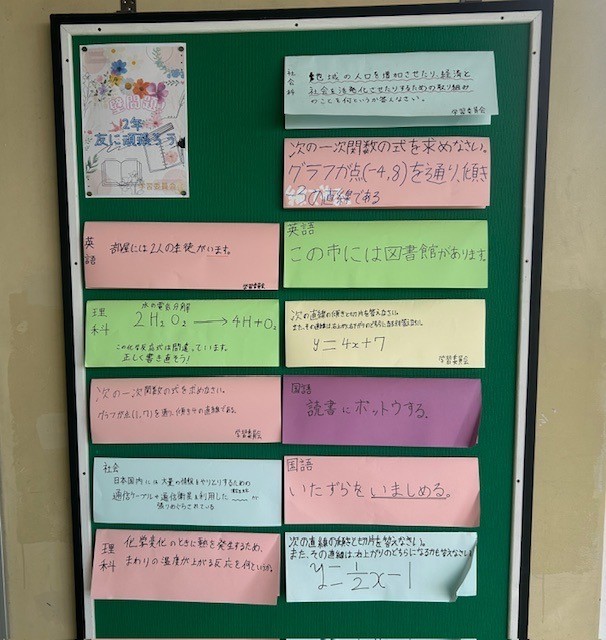 質問コーナー
2年
友に頑張ろう
学習委員会
社会科
地域の人口を増加させたり、経済と
社会を活発化させたりするための取り組み
のことを何というか答えなさい。
学習委員会
次の一次関数の式を求めなさい。
グラフが点(-4,8)を通り、傾き
の直線である
英語
部屋には2人の生徒がいます。
学習委員会
英語
この市には図書館があります。
理科
水の電気分解
2H₂O₂ → 4H+O₂
この化学反応式は間違っています。
正しく書き直そう!
次の直線の傾きと切片を答えなさい。
また、その直線は右上がり、右下がりのどちらになるかも答えなさい。
y=4x+7
学習委員会
次の一次関数の式を求めなさい。
グラフが点(1,7)を通り、傾き3の直線である。
学習委員会
国語
読書にボットウする。
社会
日本国内には大量の情報をやりとりするための
通信ケーブルや通信衛星を利用した
が
張りめぐらされている
国語
いたずらをいましめる。
理科
化学変化のときに熱を発生するため、
まわりの温度が上がる反応を何というか。
次の直線の傾きと切片を答えなさい。
また、その直線は、右上がりのどちらになるかも答えなさい。
y=1/2x-1